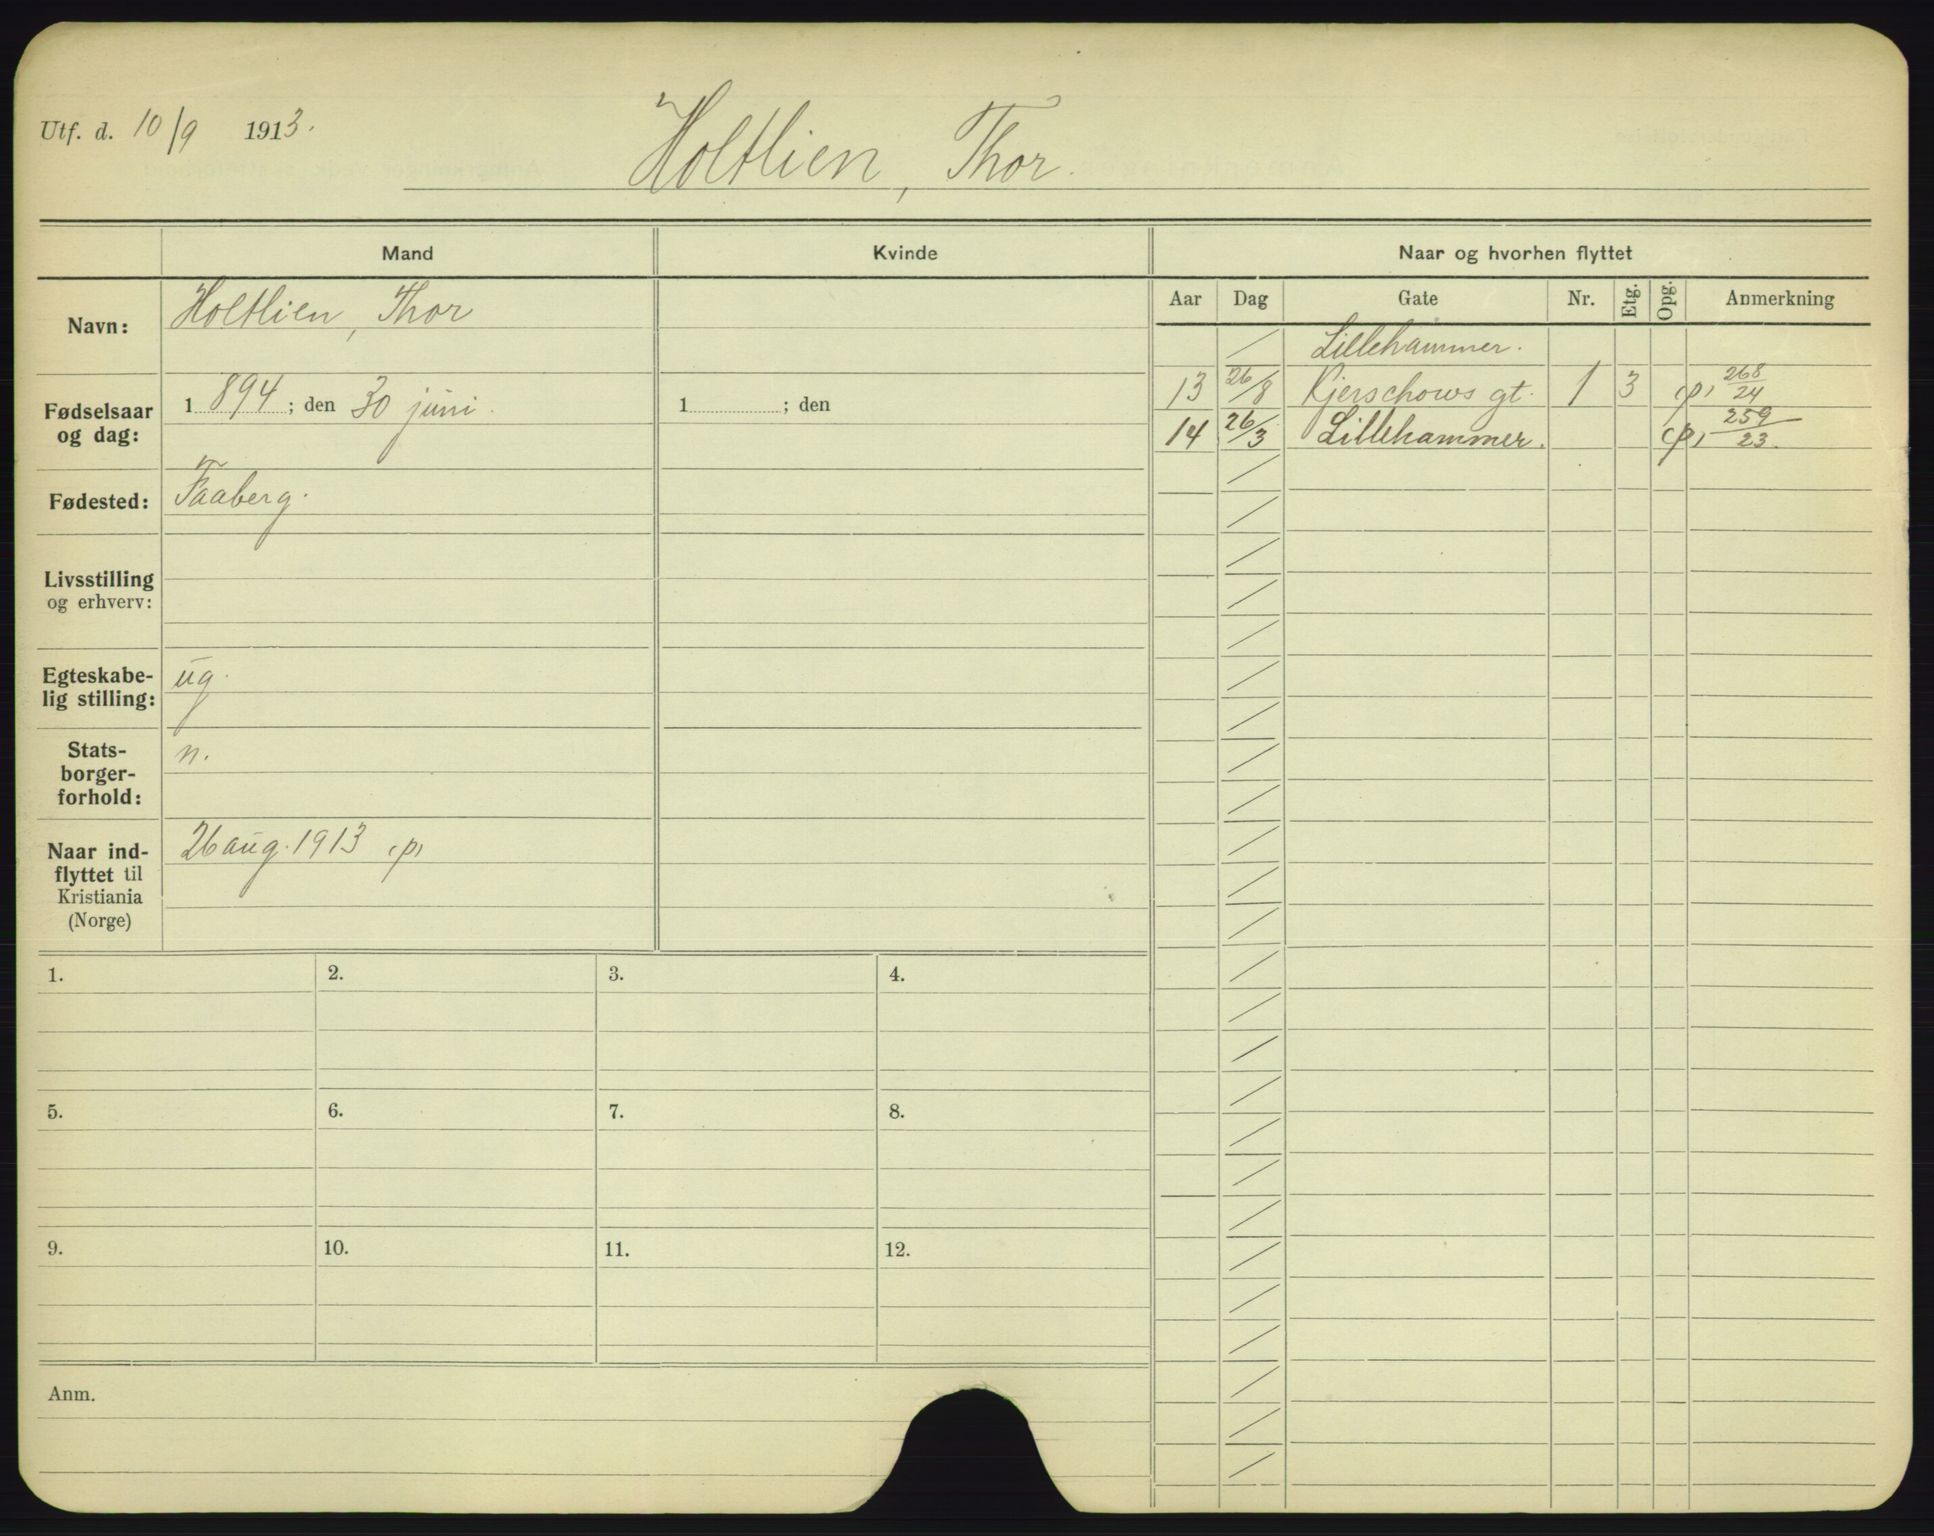 Utf. d. 10/9 1913.
Holtlien, Thor.
Mand
Kvinde
Naar og hvorhen flyttet
Navn:
Holtlien, Thor
Fødselsaar og dag:
1 894 ; den 30 juni.
1 ; den
Fødested:
Faaberg.
Livsstilling og erhverv:
Egteskabe-
lig stilling:
ug.
Stats-
borger-
forhold:
n.
Naar ind-
flyttet til
Kristiania
(Norge)
26 aug. 1913 (p)
Aar Dag Gate Nr. Etg. Opg. Anmerkning
Lillehammer.
13 26/8 Kjerschows gt. 1 3 (p) 268/24
14 26/3 Lillehammer. (p) 259/23.
1. 2. 3. 4.
5. 6. 7. 8.
9. 10. 11. 12.
Anm.